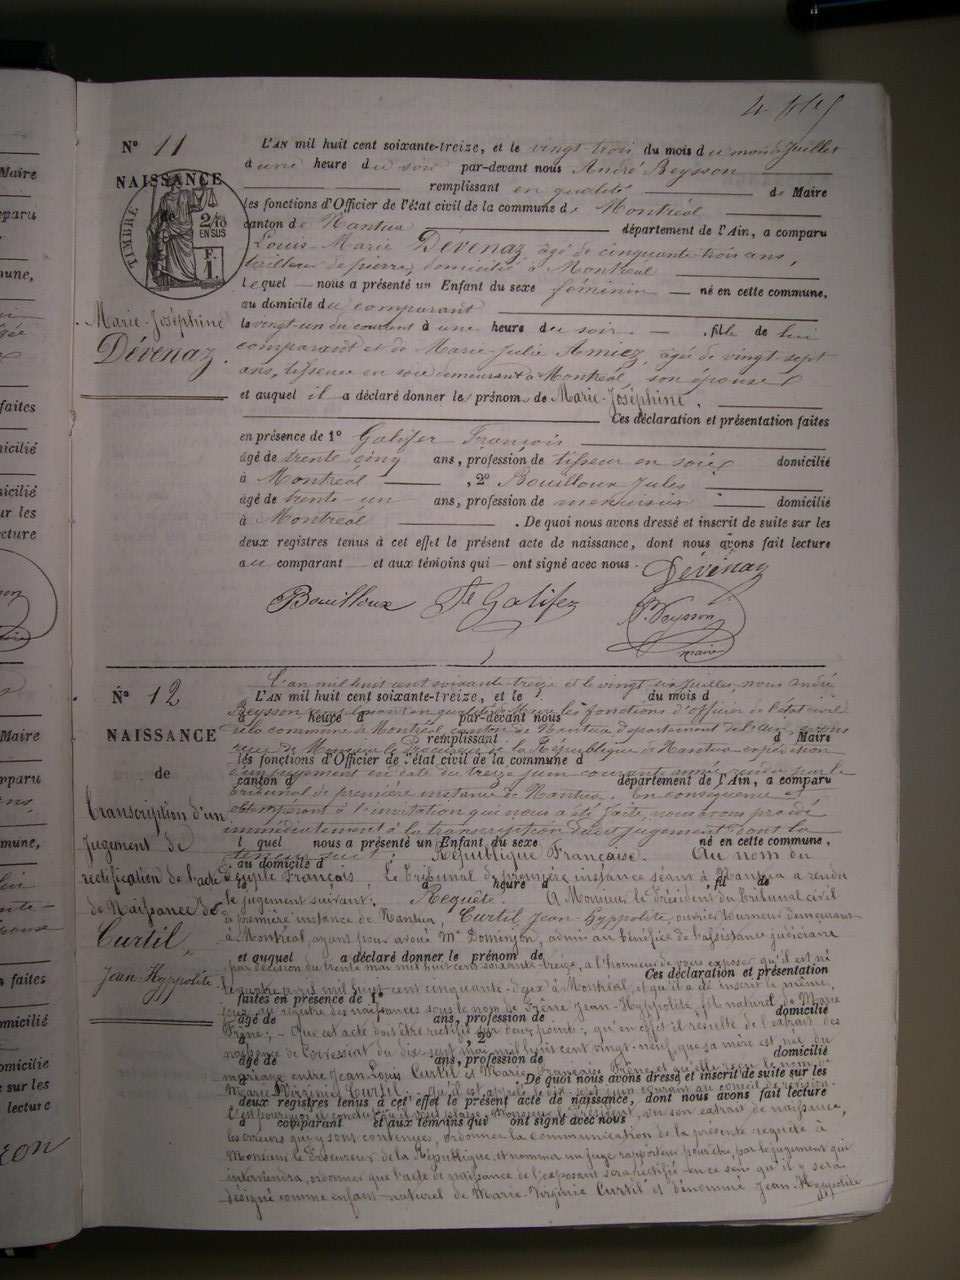 N° 11
NAISSANCE
de
TIMBRE
2/10
EN SUS
F.
1.
Marie-Joséphine
Dévenaz.
L'AN mil huit cent soixante-treize, et le vingt trois du mois du mois Juillet
à une heure du soir par-devant nous André Beysson
remplissant en qualité de Maire
les fonctions d'Officier de l'état civil de la commune de Montréal
canton de Nantua département de l'Ain, a comparu
Louis-Marie Dévenaz, âgé de cinquante trois ans,
tailleur de pierre, domicilié à Montréal
lequel nous a présenté un Enfant du sexe féminin né en cette commune,
au domicile du comparant
le vingt-un du courant à une heure du soir, fille de lui
comparant et de Marie-Julie Amiez, âgée de vingt sept
ans, tisseuse en soie demeurant à Montréal, son épouse
et auquel il a déclaré donner les prénoms de Marie-Joséphine,
Ces déclaration et présentation faites
en présence de 1° Galifer François
âgé de trente cinq ans, profession de tisseur en soie domicilié
à Montréal, 2° Bouilloux Jules
âgé de trente-un ans, profession de menuisier domicilié
à Montréal. De quoi nous avons dressé et inscrit de suite sur les
deux registres tenus à cet effet le présent acte de naissance, dont nous avons fait lecture
au comparant et aux témoins qui ont signé avec nous. Dévénaz
Bouilloux Galifer Beysson
maire
N° 12
NAISSANCE
de
transcription d'un
Jugement de
rectification de l'acte
de Naissance de
Curtil,
Jean-Hyppolite
L'an mil huit cent soixante treize et le vingt un Juillet, nous André
L'AN mil huit cent soixante-treize, et le du mois d
Beysson en qualité de Maire les fonctions d'officier de l'état civil
à heure d par-devant nous
de la commune de Montréal canton de Nantua département de l'Ain, avons
remplissant d Maire
reçu de Monsieur le Procureur de la République à Nantua expédition
les fonctions d'Officier de l'état civil de la commune d
d'un jugement en date du treize juin courant année rendu par le
canton d département de l'Ain, a comparu
tribunal de première instance de Nantua. En conséquence et
obtempérant à l'invitation qui nous a été faite, nous avons procédé
immédiatement à la transcription dudit jugement dont la
l quel nous a présenté un Enfant du sexe né en cette commune,
teneur suit: République Française. Au nom du
au domicile d
Peuple Français, Le Tribunal de première instance séant à Nantua a rendu
le à heure d, fil de
le jugement suivant: Requête. A Monsieur le Président du Tribunal civil
de première instance de Nantua, Curtil Jean-Hyppolite, ouvrier tourneur demeurant
à Montréal, ayant pour avoué Me Dominjon, admis au bénéfice de l'assistance judiciaire
et auquel a déclaré donner le prénom de
par décision du trente mai mil huit cent soixante-treize, a l'honneur de vous exposer qu'il est né
Ces déclaration et présentation
le quatre avril mil huit cent cinquante-deux à Montréal, et qu'il a été inscrit le même
faites en présence de 1°
jour au registre des naissances sous le nom de Frêne Jean-Hyppolite, fils naturel de Marie
âgé de ans, profession de domicilié
Frêne; Que cet acte doit être rectifié sur deux points; qu'en effet il résulte de l'extrait des
à, 2°
naissances de Corveissiat du dix sept mai mil huit cent vingt-neuf, que sa mère est née du
âgé de ans, profession de domicilié
mariage entre Jean Louis Curtil et Marie Françoise Frêne et qu'elle a reçu le nom de
à. De quoi nous avons dressé et inscrit de suite sur les
Marie Virginie Curtil;
deux registres tenus à cet effet le présent acte de naissance, dont nous avons fait lecture
C'est pourquoi il conclut qu'il vous plaise, Monsieur le Président, vu son extrait de naissance,
à comparant et aux témoins qui ont signé avec nous
les erreurs qui y sont contenues, ordonner la communication de la présente requête à
Monsieur le Procureur de la République, et nommer un juge rapporteur pour être, par le jugement qui
interviendra, ordonner que l'acte de naissance de l'exposant sera rectifié en ce sens qu'il y sera
désigné comme enfant naturel de Marie-Virginie Curtil et dénommé Jean-Hyppolite